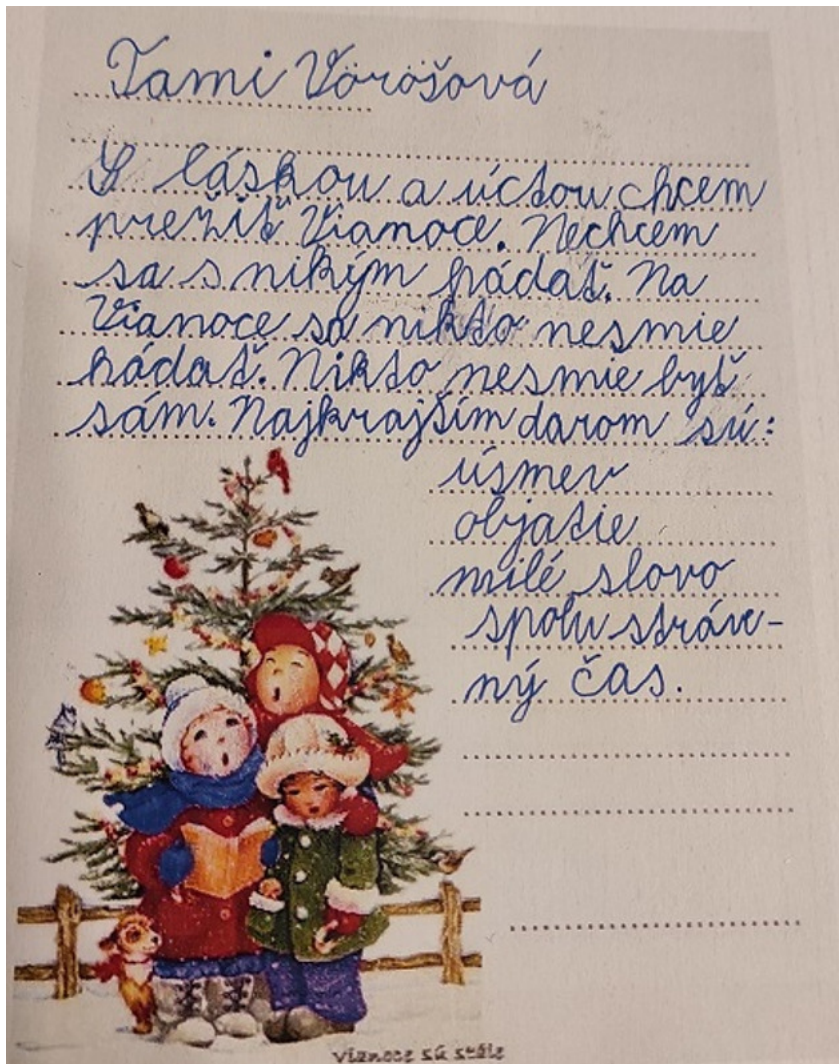 Tami Vörösová
S láskou a úctou chcem
prežiť Vianoce. Nechcem
sa s nikým hádať. Na
Vianoce sa nikto nesmie
hádať. Nikto nesmie byť
sám. Najkrajším darom sú:
úsmev
objatie
milé slovo
spolu stráve-
ný čas.
Vianoce sú stále